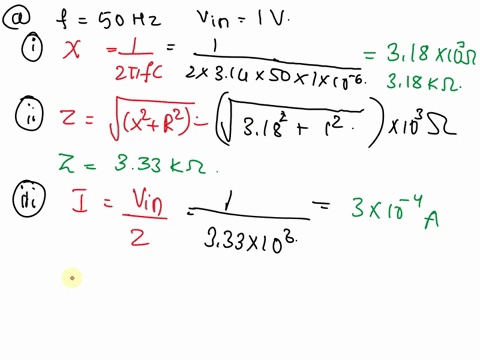 (a) f = 50 Hz Vin = 1 V.
(i) X = 1/2πfC = 1/2 × 3.14 × 50 × 1 × 10⁻⁶. = 3.18 × 10³ Ω
3.18 KΩ.
(ii) Z = √(X² + R²) = (√3.18² + 1².) × 10³ Ω
Z = 3.33 KΩ.
(iii) I = Vin/Z = 1/3.33 × 10³. = 3 × 10⁻⁴ A